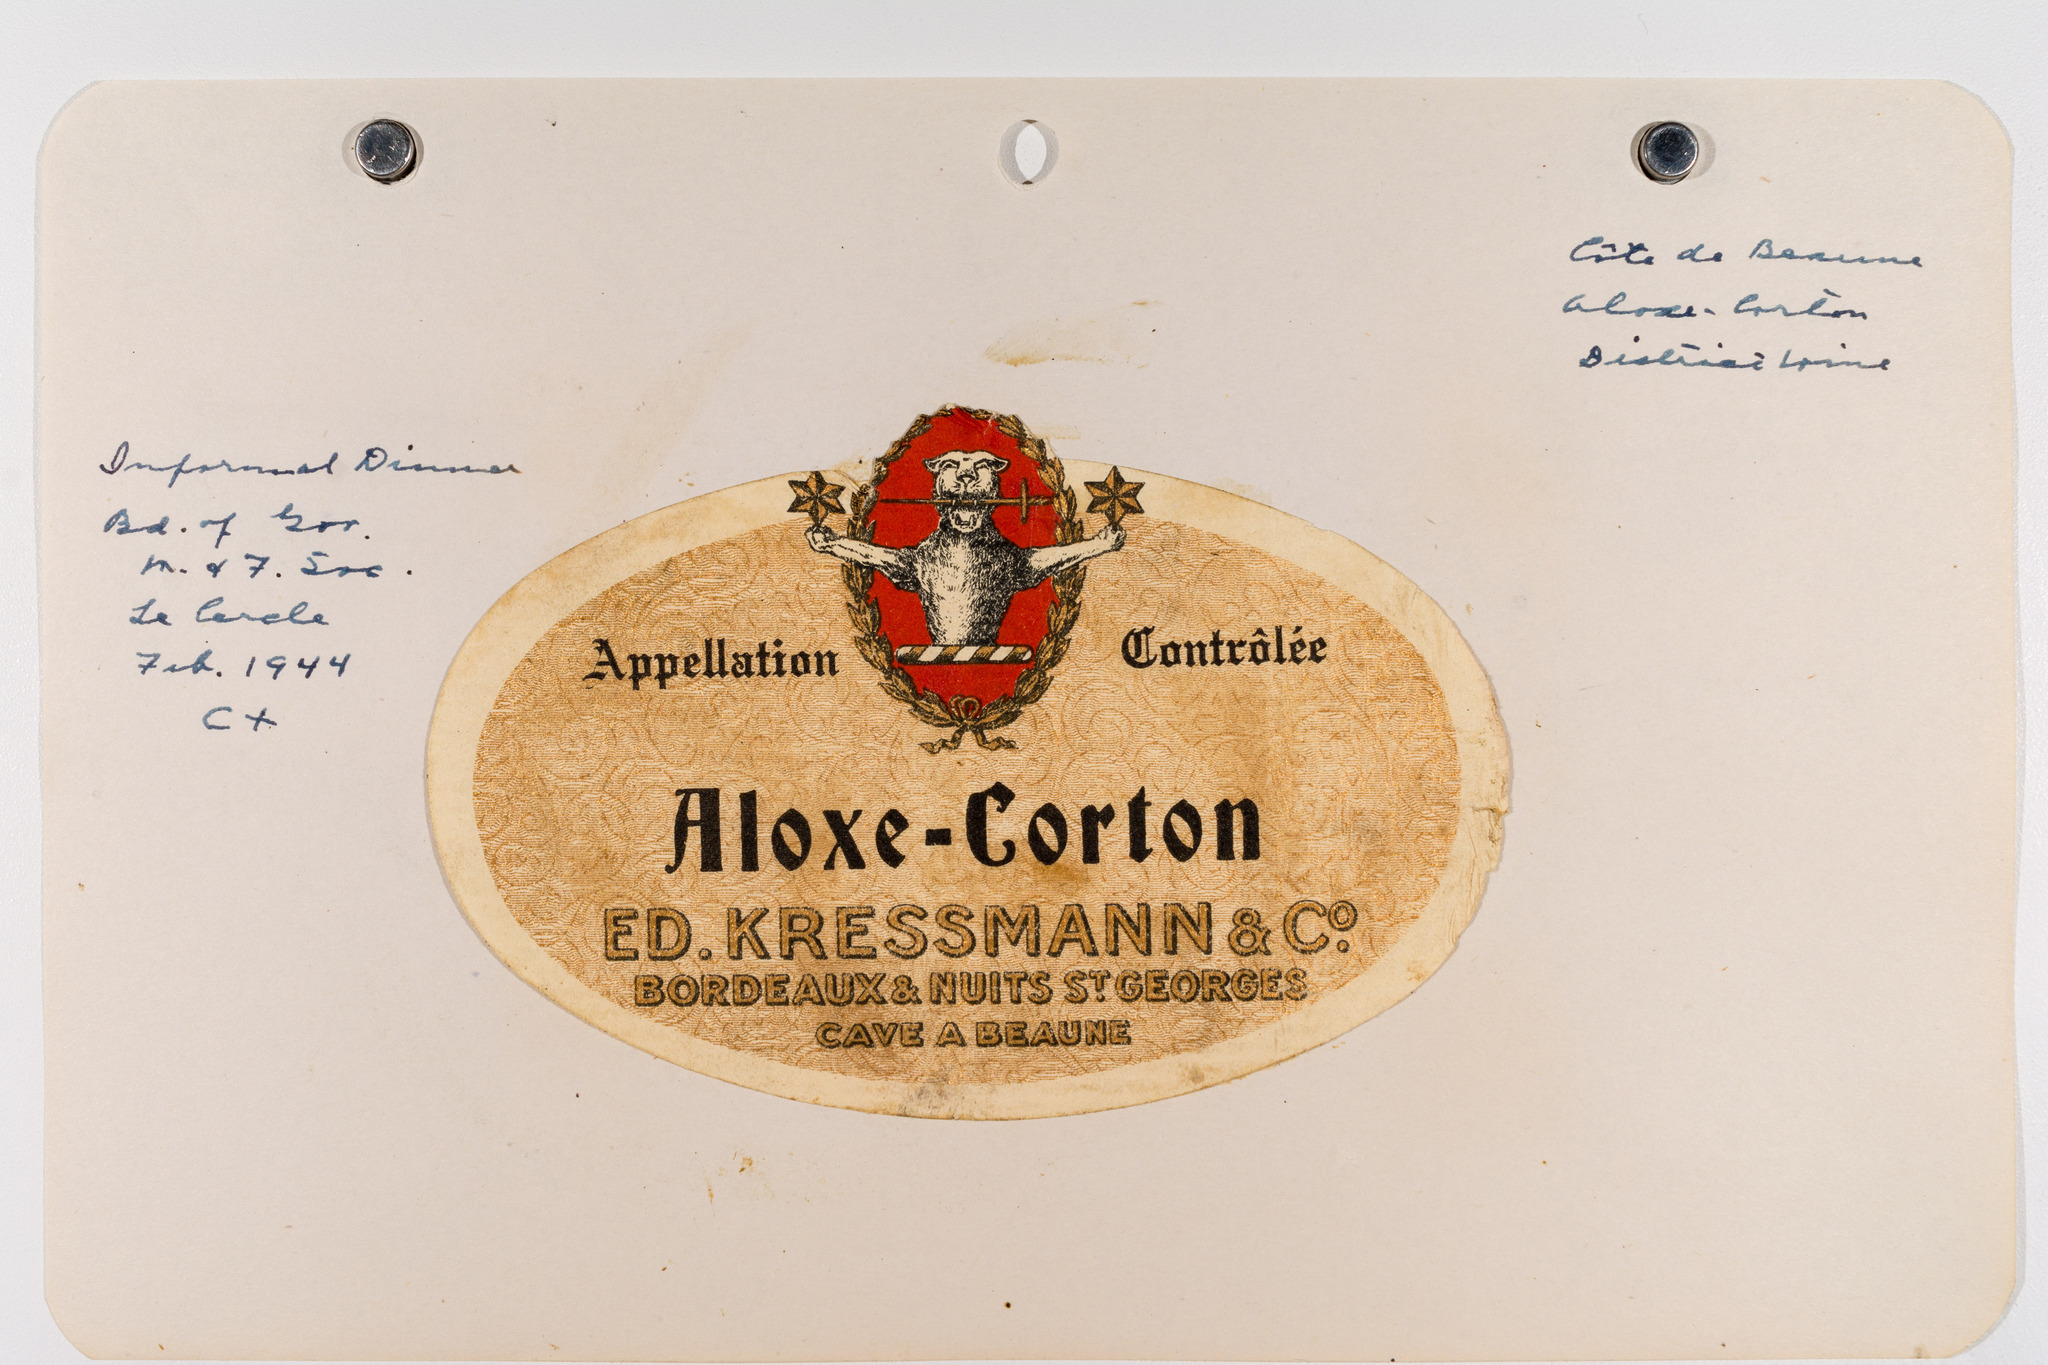 Côte de Beaune
Aloxe-Corton
District Wine
Informal Dinner
Bd. of Gov.
W. & F. Soc.
Le Cercle
Feb. 1944
C+
Appellation Contrôlée
Aloxe-Corton
ED. KRESSMANN & Cº.
BORDEAUX & NUITS ST GEORGES
CAVE A BEAUNE